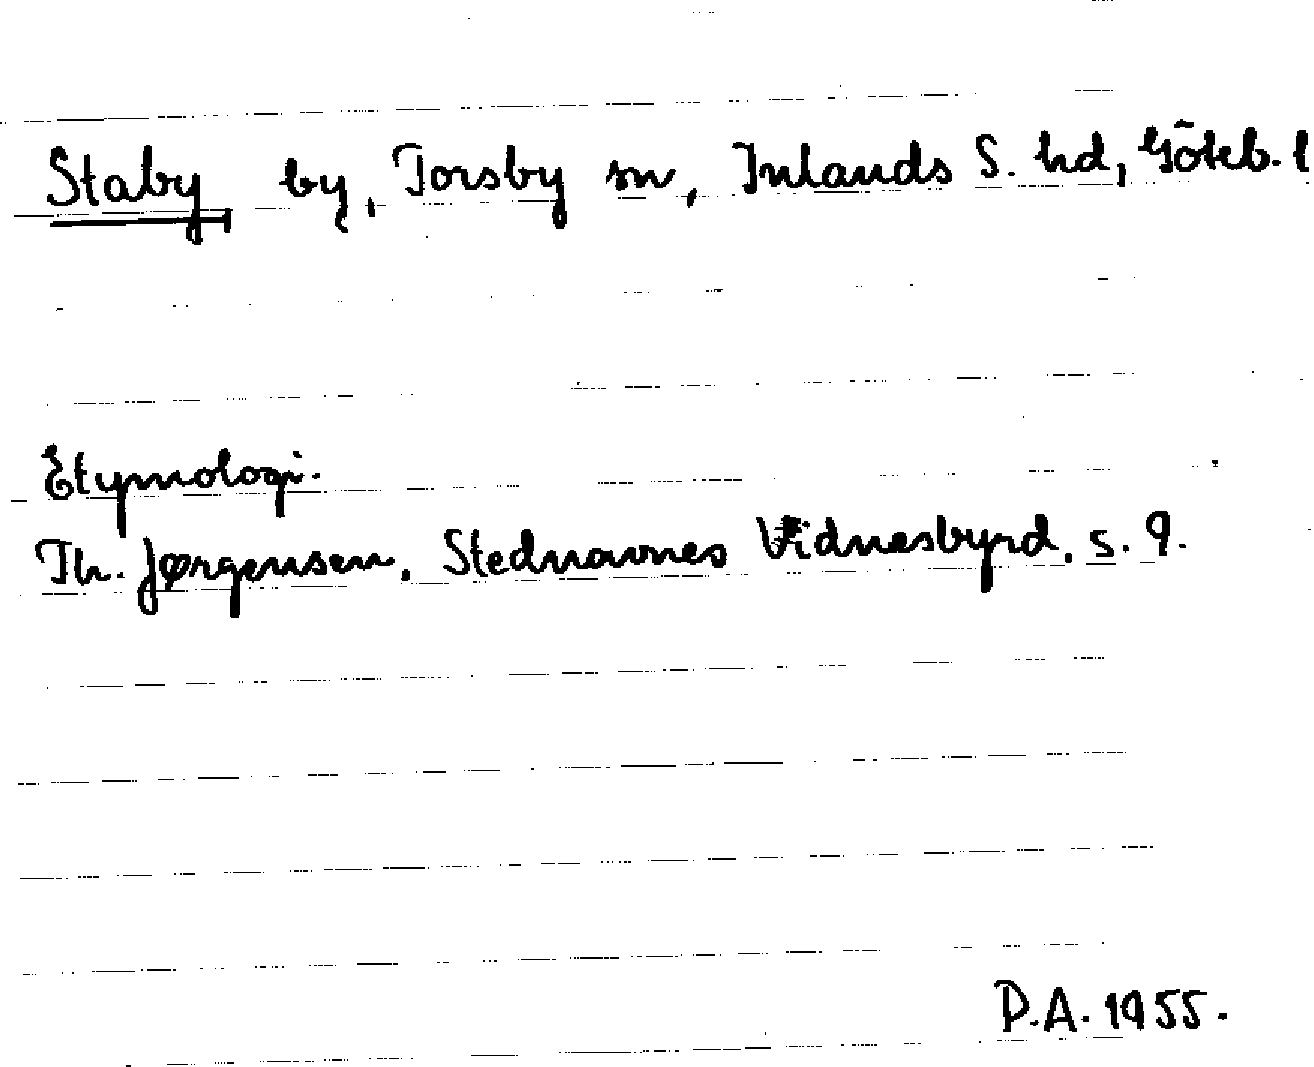 Staby by, Torsby sn, Inlands S. hd, Göteb. l
Etymologi.
Th. Jørgensen, Stednavnes Vidnesbyrd, s. 9.
P.A. 1955.